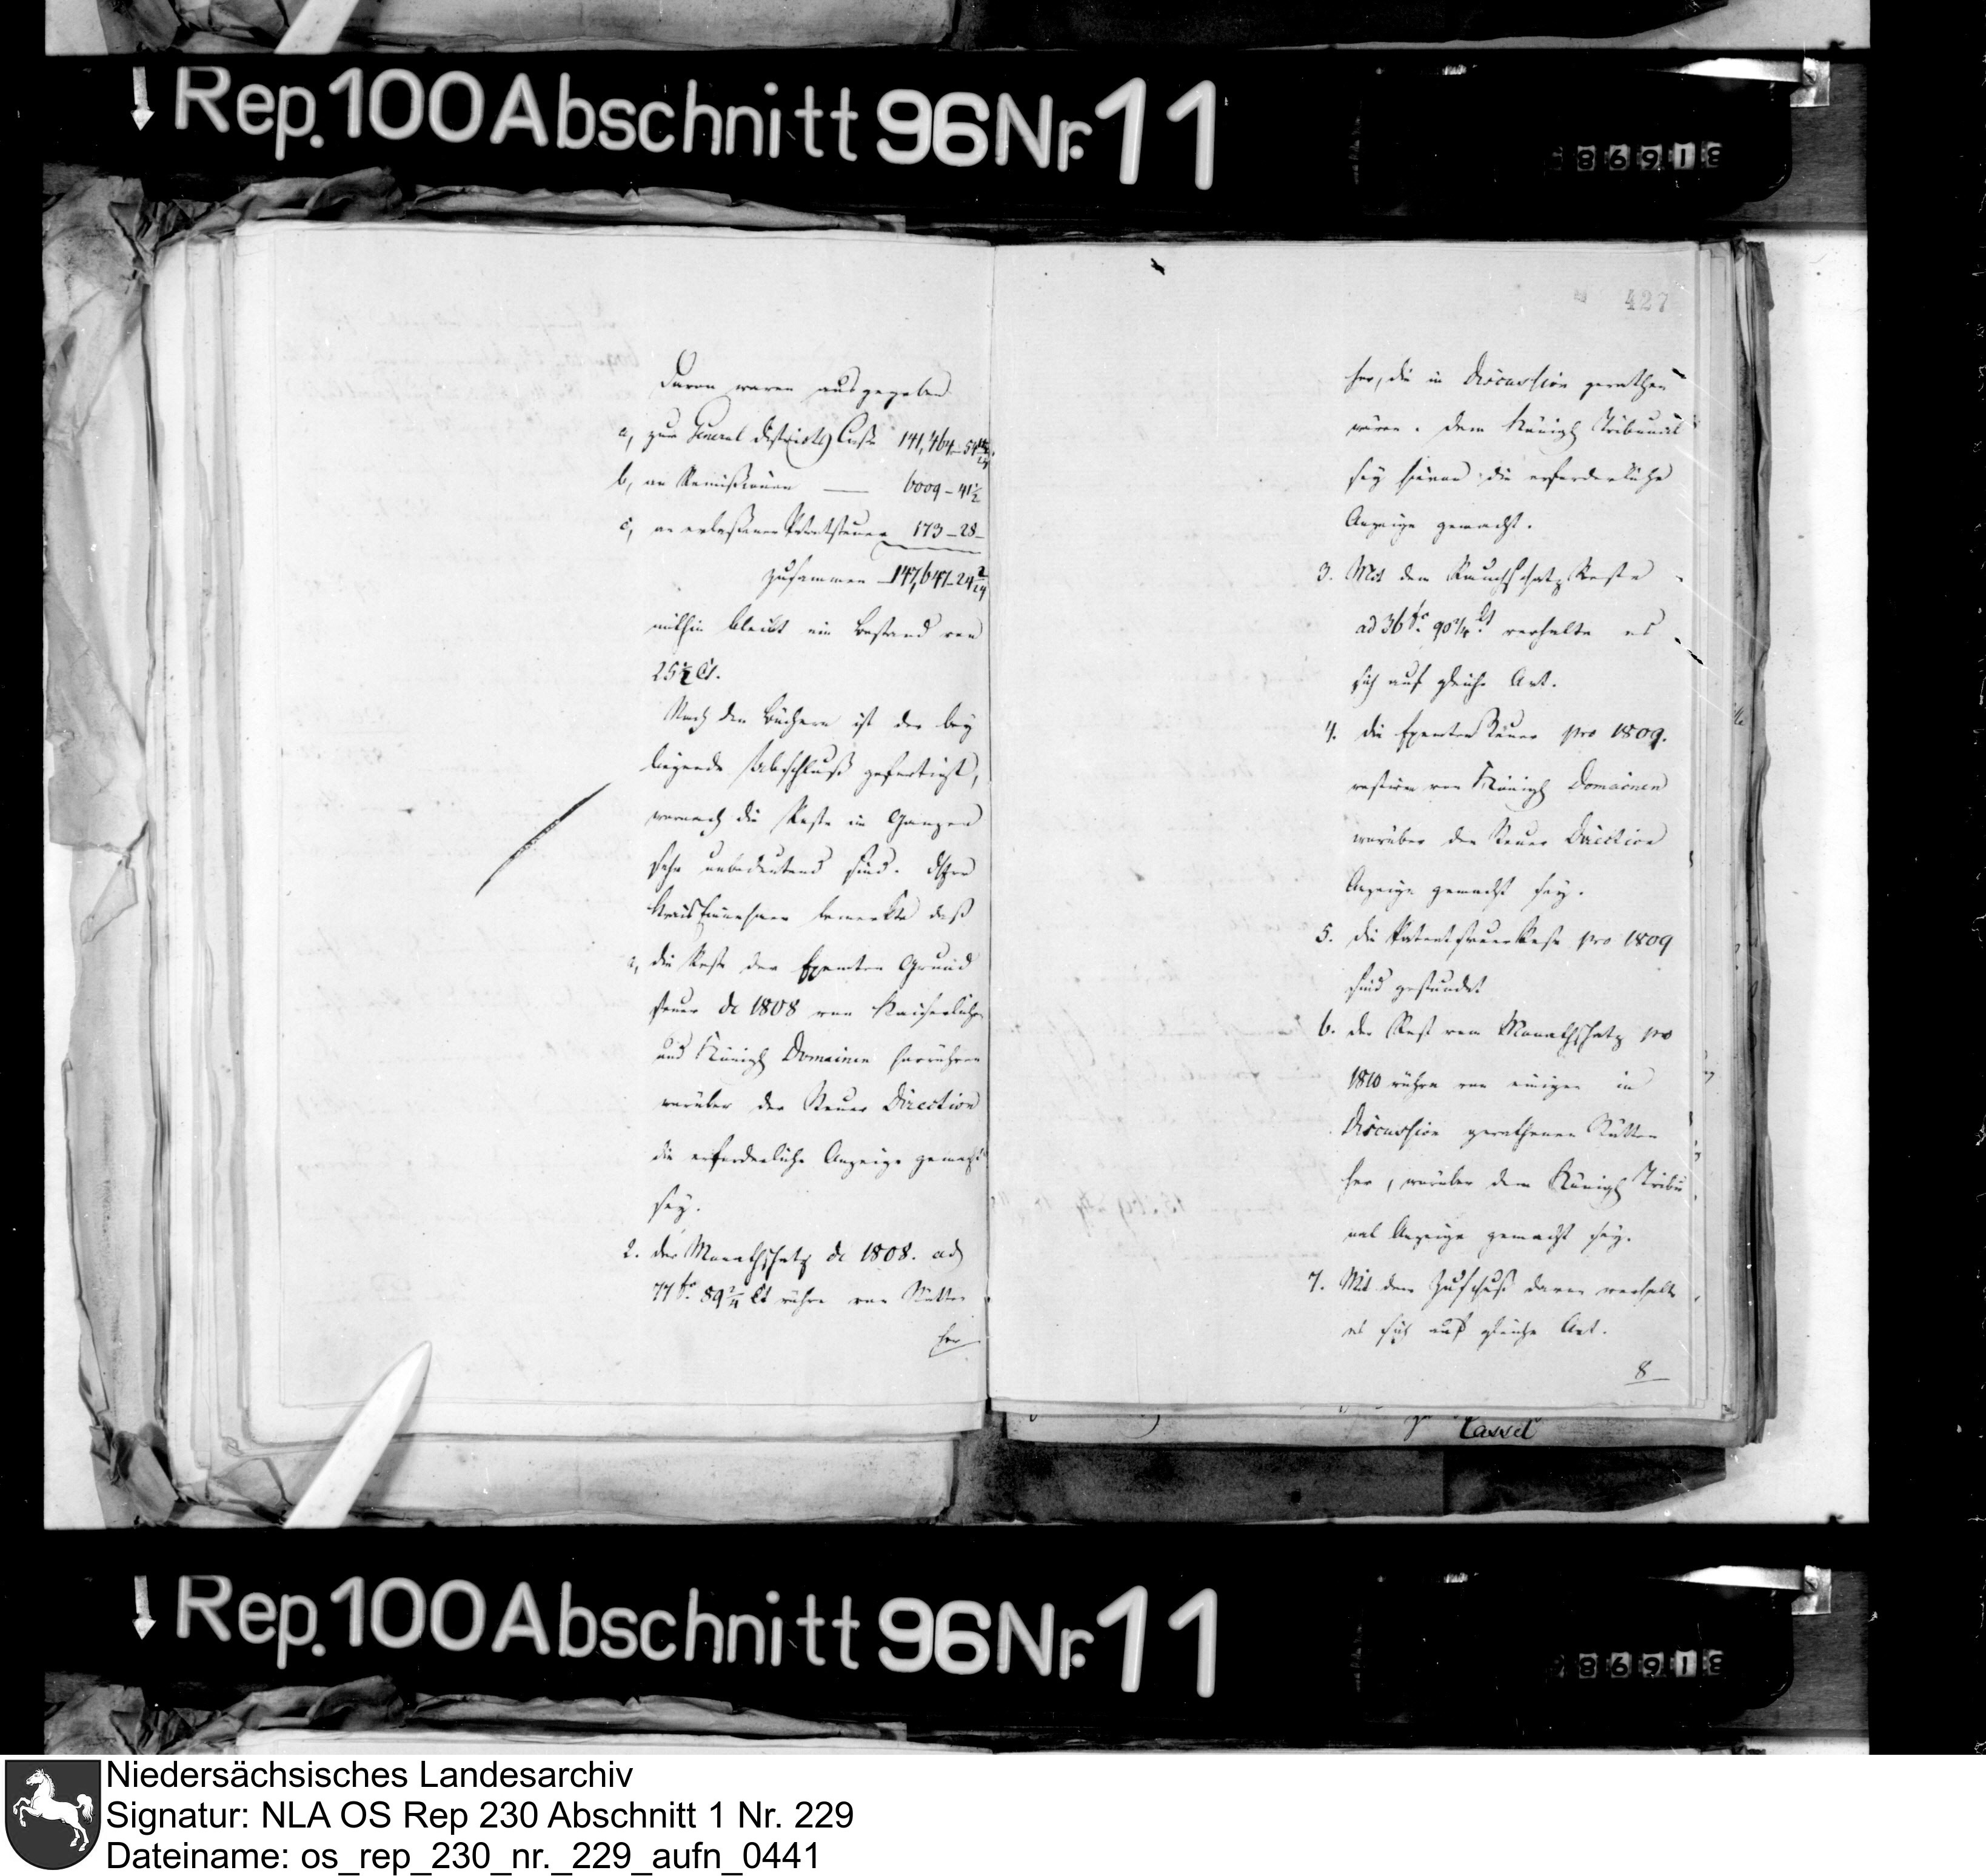 Rep. 100 Abschnitt 96 Nr. 11
86918
427
Davon waren ausgegeben
a, zur General Districts Casse 141,464 - 54
b, an Remissionen — 6009 - 41½
c, an erlassener Patentsteuer 173 - 28 -
zusammen 147,647 - 24 2/24
mithin bleibt ein Bestand von
25½ Ct.
Nach den Büchern ist der bey
liegende Abschluß gefertigt,
wornach die Reste im Ganzen
sehr unbedeutend sind. Der
Kreis Einnehmer bemerkte daß
1, die Reste der Exemten Grund
steuer de 1808 von Kaiserlichen
und Königl Domainen herrühren
worüber der Steuer Direction
die erforderliche Anzeige gemacht
sey.
2. der Monathschatz de 1808. ad
77 fr. 89¾ Ct rühre von Stätten
her
her, die in Discussion gerathen
wären. Dem Königl Tribunal
sey hievon die erforderliche
Anzeige gemacht.
3. Mit dem Rauchschatz Reste
ad 36 fr. 90¾ Ct verhalte es
sich auf gleiche Art.
4. die Exemten Steuer pro 1809.
restire von Königl Domainen
worüber der Steuer Direction
Anzeige gemacht sey.
5. die Patentsteuer Reste pro 1809
sind gestundet
6. der Rest vom Monathschatz pro
1810 rühre von einigen in
Discussion gerathenen Stätten
her, worüber dem Königl Tribu
nal Anzeige gemacht sey.
7. Mit dem Zuschuß davon verhalte
es sich auf gleiche Art.
8
Cassel
Rep. 100 Abschnitt 96 Nr. 11
86918
Niedersächsisches Landesarchiv
Signatur: NLA OS Rep 230 Abschnitt 1 Nr. 229
Dateiname: os_rep_230_nr._229_aufn_0441